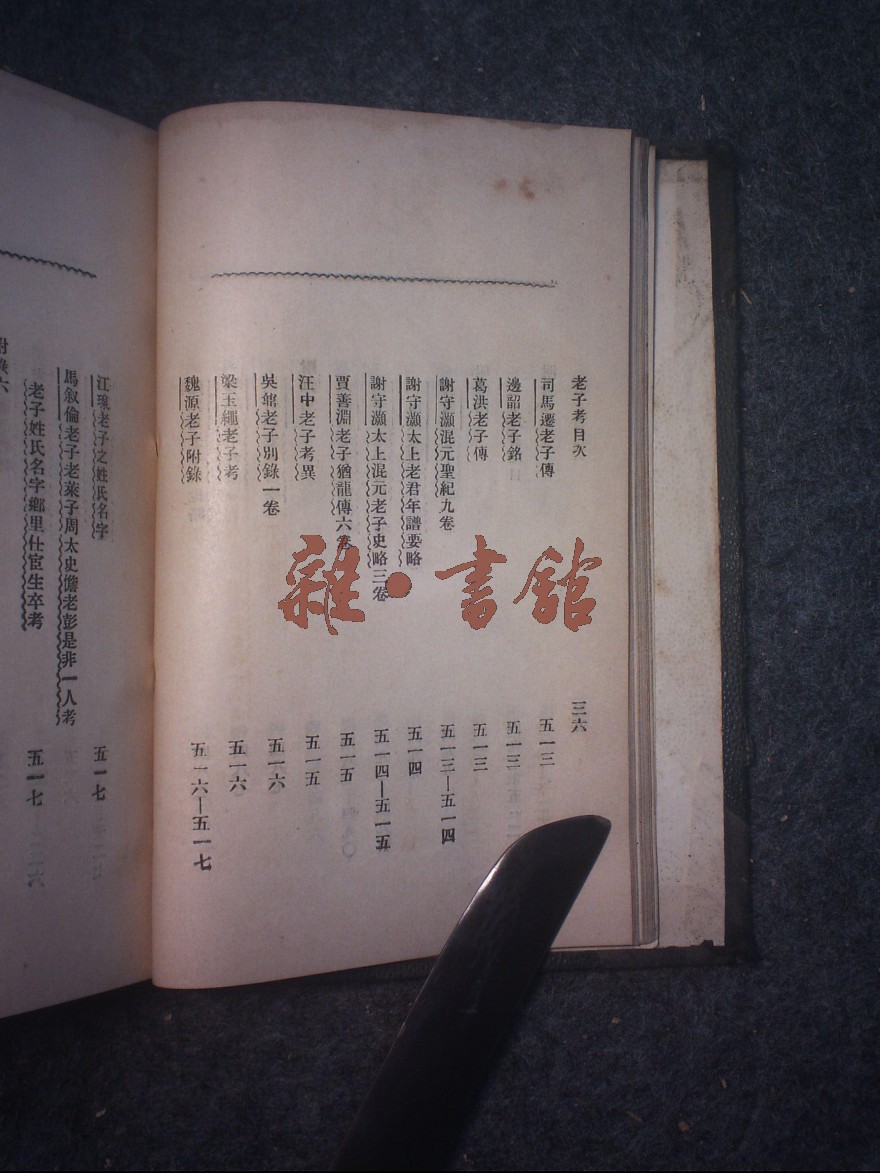 老子考目次 三六
司馬遷老子傳 五一三
邊韶老子銘 五一三
葛洪老子傳 五一三
謝守灝混元聖紀九卷 五一三—五一四
謝守灝太上老君年譜要略 五一四
謝守灝太上混元老子史略三卷 五一四—五一五
賈善淵老子猶龍傳六卷 五一五
汪中老子考異 五一五
吳鼐老子別錄一卷 五一六
梁玉繩老子考 五一六
魏源老子附錄 五一六—五一七
江瑔老子之姓氏名字 五一七
馬叙倫老子老萊子周太史儋老彭是非一人考
老子姓氏名字鄉里仕宦生卒考 五一七
附錄六
雜·書館